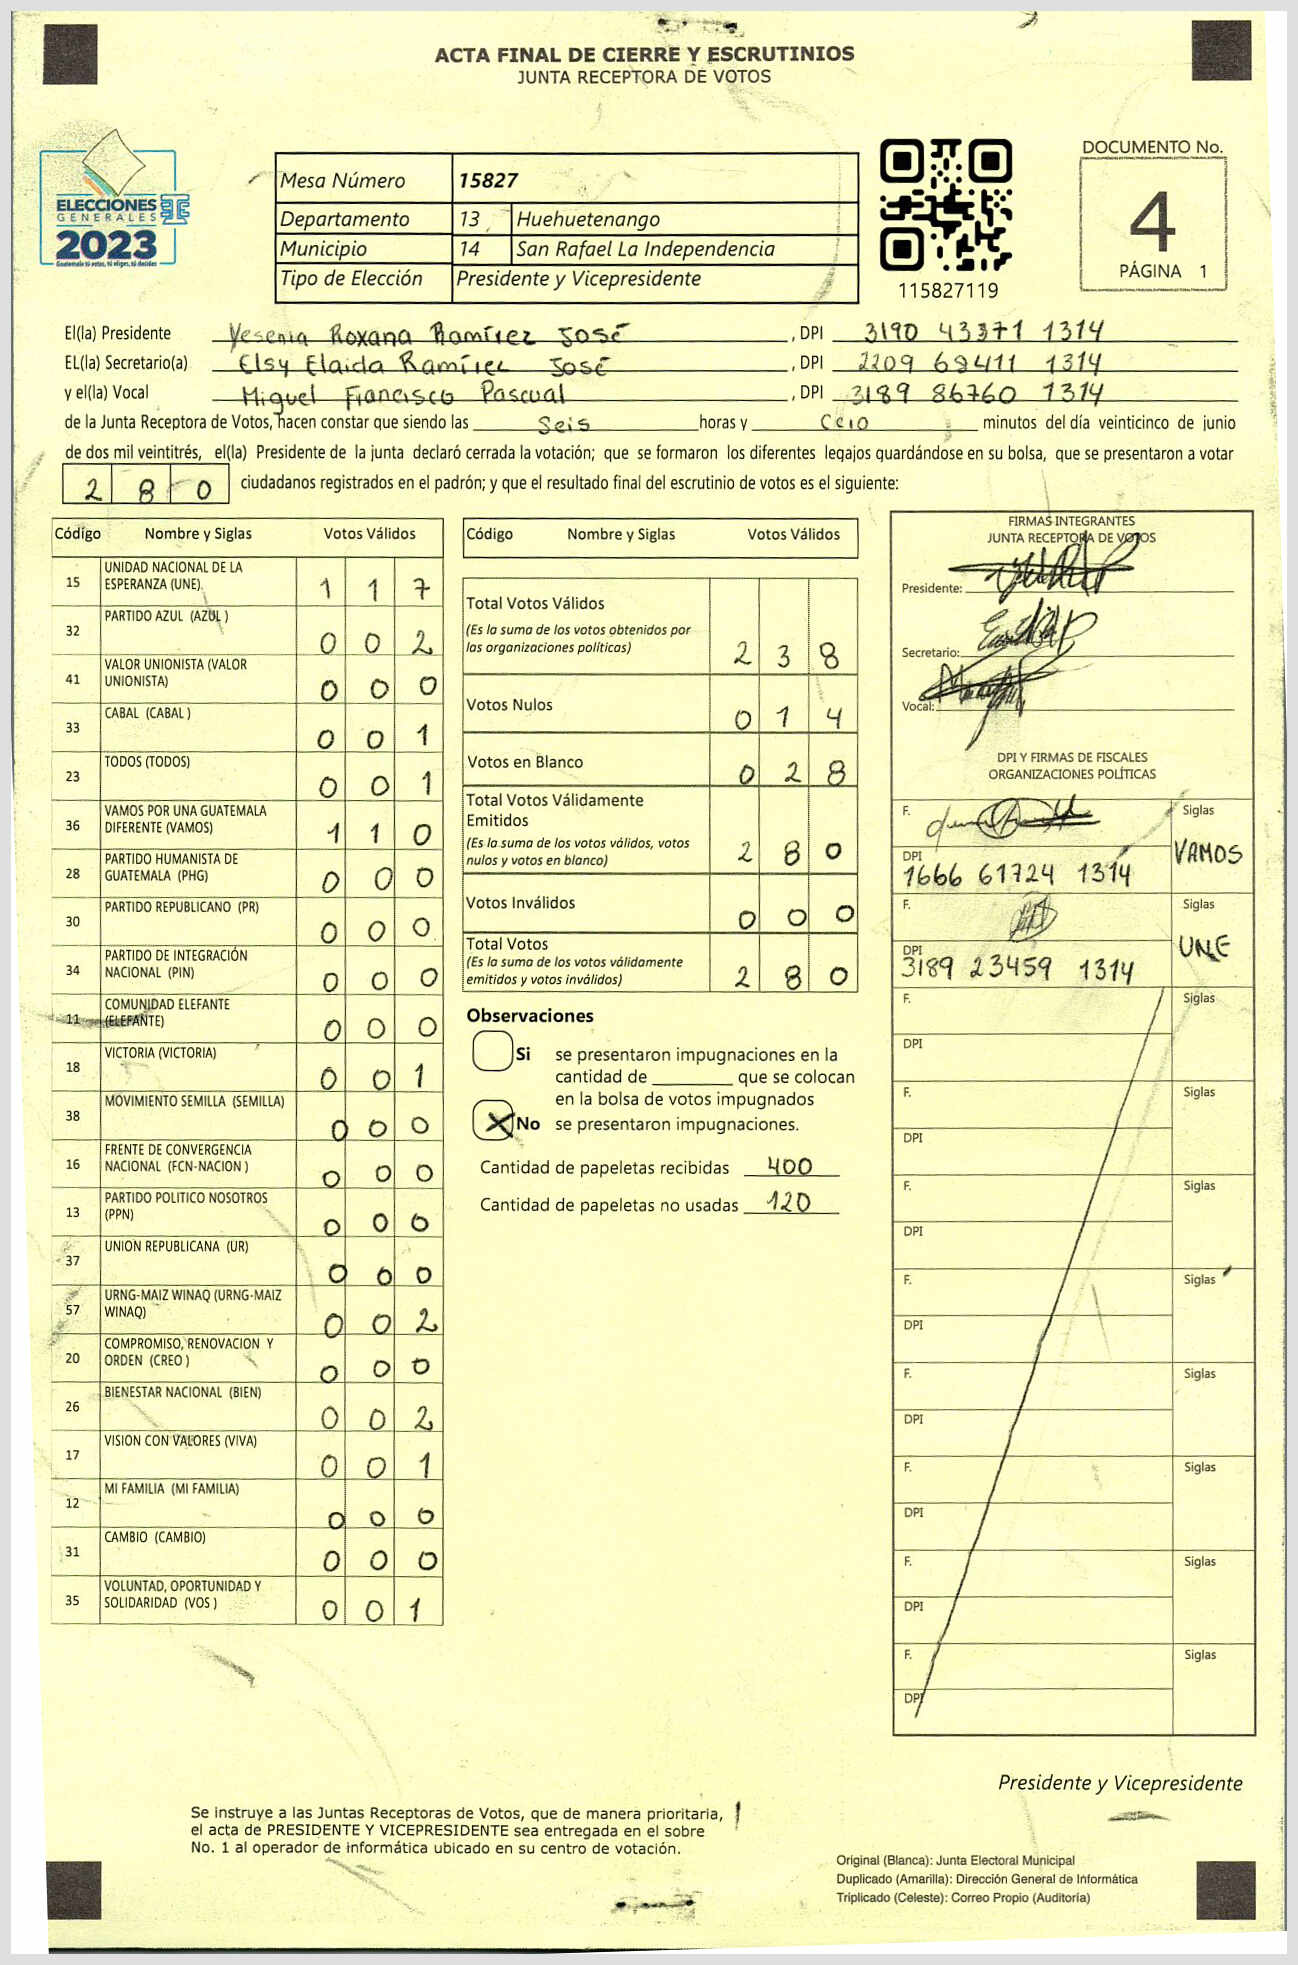 ACTA FINAL DE CIERRE Y ESCRUTINIOS
JUNTA RECEPTORA DE VOTOS
ELECCIONES
GENERALES
2023
Guatemala tú votas, tú eliges, tú decides
Mesa Número 15827
Departamento 13 Huehuetenango
Municipio 14 San Rafael La Independencia
Tipo de Elección Presidente y Vicepresidente
115827119
DOCUMENTO No.
4
PÁGINA 1
El(la) Presidente Yesenia Roxana Ramírez José , DPI 3190 43371 1314
EL(la) Secretario(a) Elsy Elaida Ramírez José , DPI 2209 69411 1314
y el(la) Vocal Miguel Francisco Pascual , DPI 3189 86760 1314
de la Junta Receptora de Votos, hacen constar que siendo las Seis horas y Cero minutos del día veinticinco de junio
de dos mil veintitrés, el(la) Presidente de la junta declaró cerrada la votación; que se formaron los diferentes legajos guardándose en su bolsa, que se presentaron a votar
2 8 0 ciudadanos registrados en el padrón; y que el resultado final del escrutinio de votos es el siguiente:
Código Nombre y Siglas Votos Válidos
15 UNIDAD NACIONAL DE LA
ESPERANZA (UNE). 1 1 7
32 PARTIDO AZUL (AZUL ) 0 0 2
41 VALOR UNIONISTA (VALOR
UNIONISTA) 0 0 0
33 CABAL (CABAL ) 0 0 1
23 TODOS (TODOS) 0 0 1
36 VAMOS POR UNA GUATEMALA
DIFERENTE (VAMOS) 1 1 0
28 PARTIDO HUMANISTA DE
GUATEMALA (PHG) 0 0 0
30 PARTIDO REPUBLICANO (PR) 0 0 0
34 PARTIDO DE INTEGRACIÓN
NACIONAL (PIN) 0 0 0
11 COMUNIDAD ELEFANTE
(ELEFANTE) 0 0 0
18 VICTORIA (VICTORIA) 0 0 1
38 MOVIMIENTO SEMILLA (SEMILLA) 0 0 0
16 FRENTE DE CONVERGENCIA
NACIONAL (FCN-NACION ) 0 0 0
13 PARTIDO POLITICO NOSOTROS
(PPN) 0 0 0
37 UNION REPUBLICANA (UR) 0 0 0
57 URNG-MAIZ WINAQ (URNG-MAIZ
WINAQ) 0 0 2
20 COMPROMISO, RENOVACION Y
ORDEN (CREO ) 0 0 0
26 BIENESTAR NACIONAL (BIEN) 0 0 2
17 VISION CON VALORES (VIVA) 0 0 1
12 MI FAMILIA (MI FAMILIA) 0 0 0
31 CAMBIO (CAMBIO) 0 0 0
35 VOLUNTAD, OPORTUNIDAD Y
SOLIDARIDAD (VOS ) 0 0 1
Código Nombre y Siglas Votos Válidos
Total Votos Válidos
(Es la suma de los votos obtenidos por
las organizaciones políticas) 2 3 8
Votos Nulos 0 1 4
Votos en Blanco 0 2 8
Total Votos Válidamente
Emitidos
(Es la suma de los votos válidos, votos
nulos y votos en blanco) 2 8 0
Votos Inválidos 0 0 0
Total Votos
(Es la suma de los votos válidamente
emitidos y votos inválidos) 2 8 0
Observaciones
Si se presentaron impugnaciones en la
cantidad de ________ que se colocan
en la bolsa de votos impugnados
X No se presentaron impugnaciones.
Cantidad de papeletas recibidas 400
Cantidad de papeletas no usadas 120
FIRMAS INTEGRANTES
JUNTA RECEPTORA DE VOTOS
Presidente:
Secretario:
Vocal:
DPI Y FIRMAS DE FISCALES
ORGANIZACIONES POLÍTICAS
F. Siglas
VAMOS
DPI
1666 61724 1314
F. Siglas
UNE
DPI
3189 23459 1314
F. Siglas
DPI
F. Siglas
DPI
F. Siglas
DPI
F. Siglas
DPI
F. Siglas
DPI
F. Siglas
DPI
F. Siglas
DPI
F. Siglas
DPI
Presidente y Vicepresidente
Se instruye a las Juntas Receptoras de Votos, que de manera prioritaria,
el acta de PRESIDENTE Y VICEPRESIDENTE sea entregada en el sobre
No. 1 al operador de informática ubicado en su centro de votación.
Original (Blanca): Junta Electoral Municipal
Duplicado (Amarilla): Dirección General de Informática
Triplicado (Celeste): Correo Propio (Auditoría)